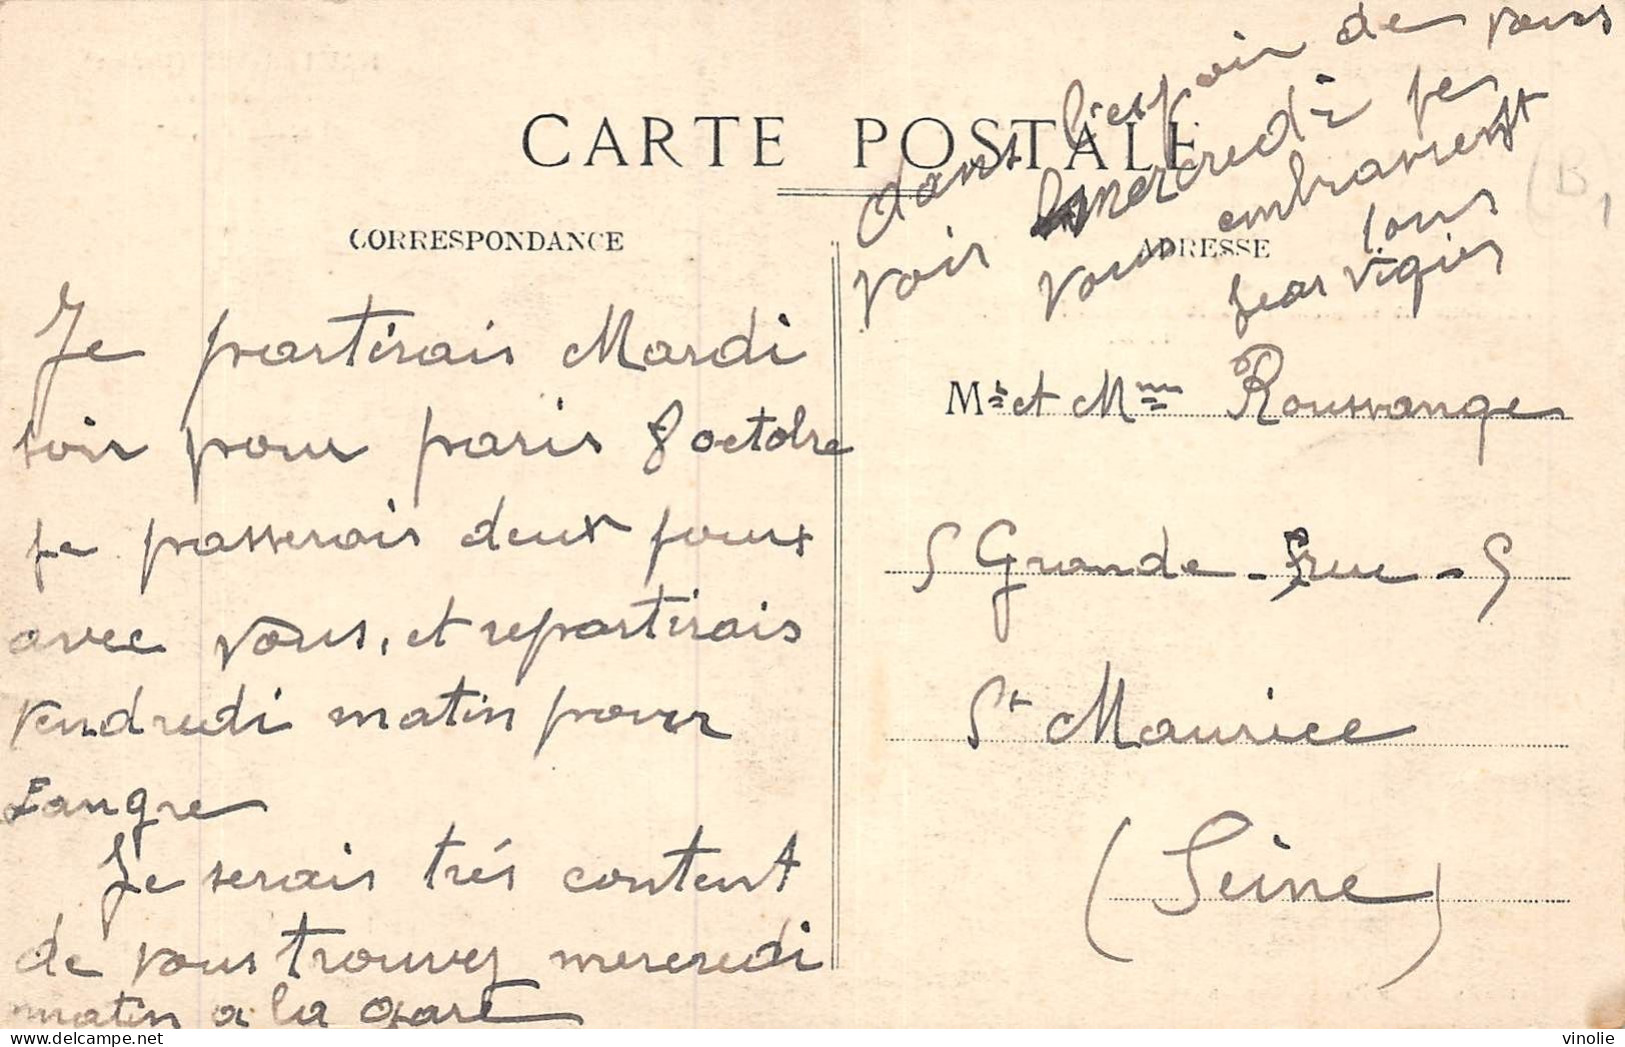 CARTE POSTALE
CORRESPONDANCE
Je partirais Mardi
soir pour paris 8 octobre
je passerais deux jours
avec vous, et repartirais
vendredi matin pour
Langre
Je serais trés content
de vous trouvez mercredi
matin a la gare
dans l'espoir de vous
voir mercredi je
vous embrassent
tous
Jean Vigier
ADRESSE
Mr et Mme Roussange
5 Grande-rue-5
St Maurice
(Seine)
(B,
vinolie